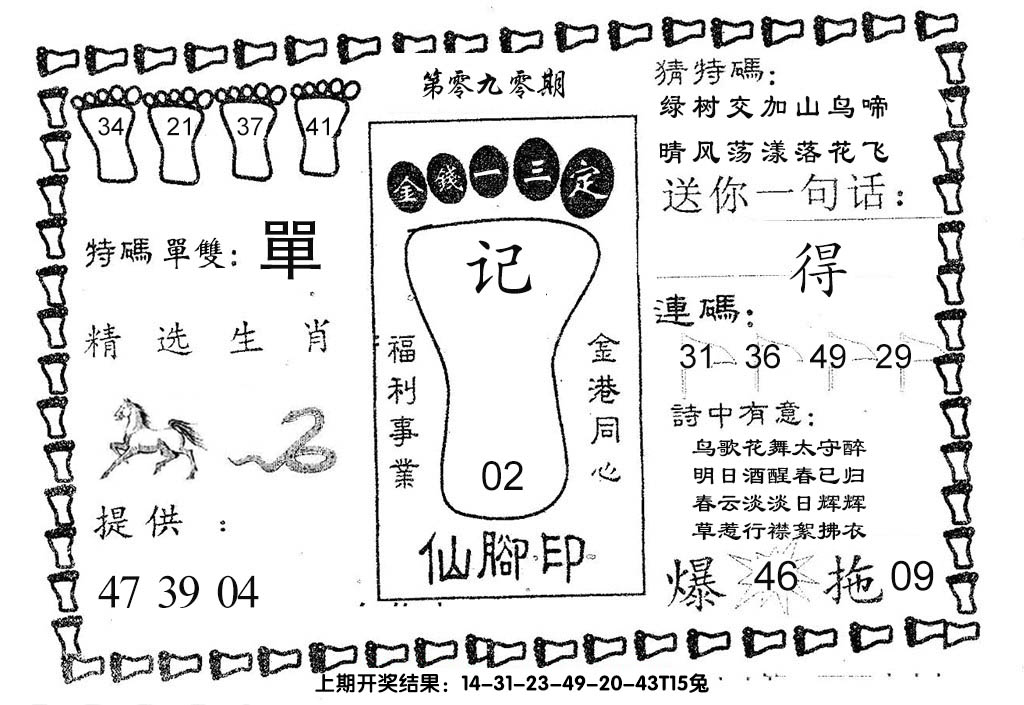 第零九零期
34 21 37 41
特碼單雙：單
精选生肖
提供：
47 39 04
金錢一三定
记
福利事業
金港同心
02
仙腳印
猜特碼：
绿树交加山鸟啼
晴风荡漾落花飞
送你一句话：
得
連碼：
31 36 49 29
詩中有意：
鸟歌花舞太守醉
明日酒醒春已归
春云淡淡日辉辉
草惹行襟絮拂衣
爆 46 拖 09
上期开奖结果：14-31-23-49-20-43T15兔